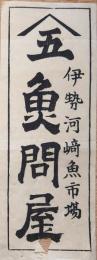 五
魚問屋
伊勢河﨑魚市場